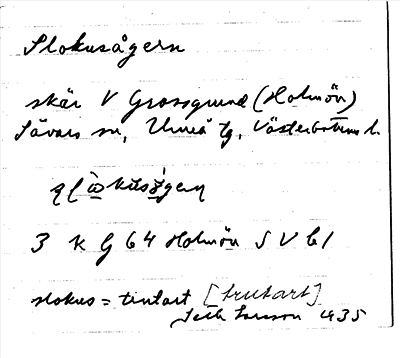 Slokusågern
skär V Grossgrund (Holmön)
Sävars sn, Umeå tg, Västerbottens l.
3 k G 64 Holmön S V b1
slokus = trutart [trutart]
Seth Larsson 1935